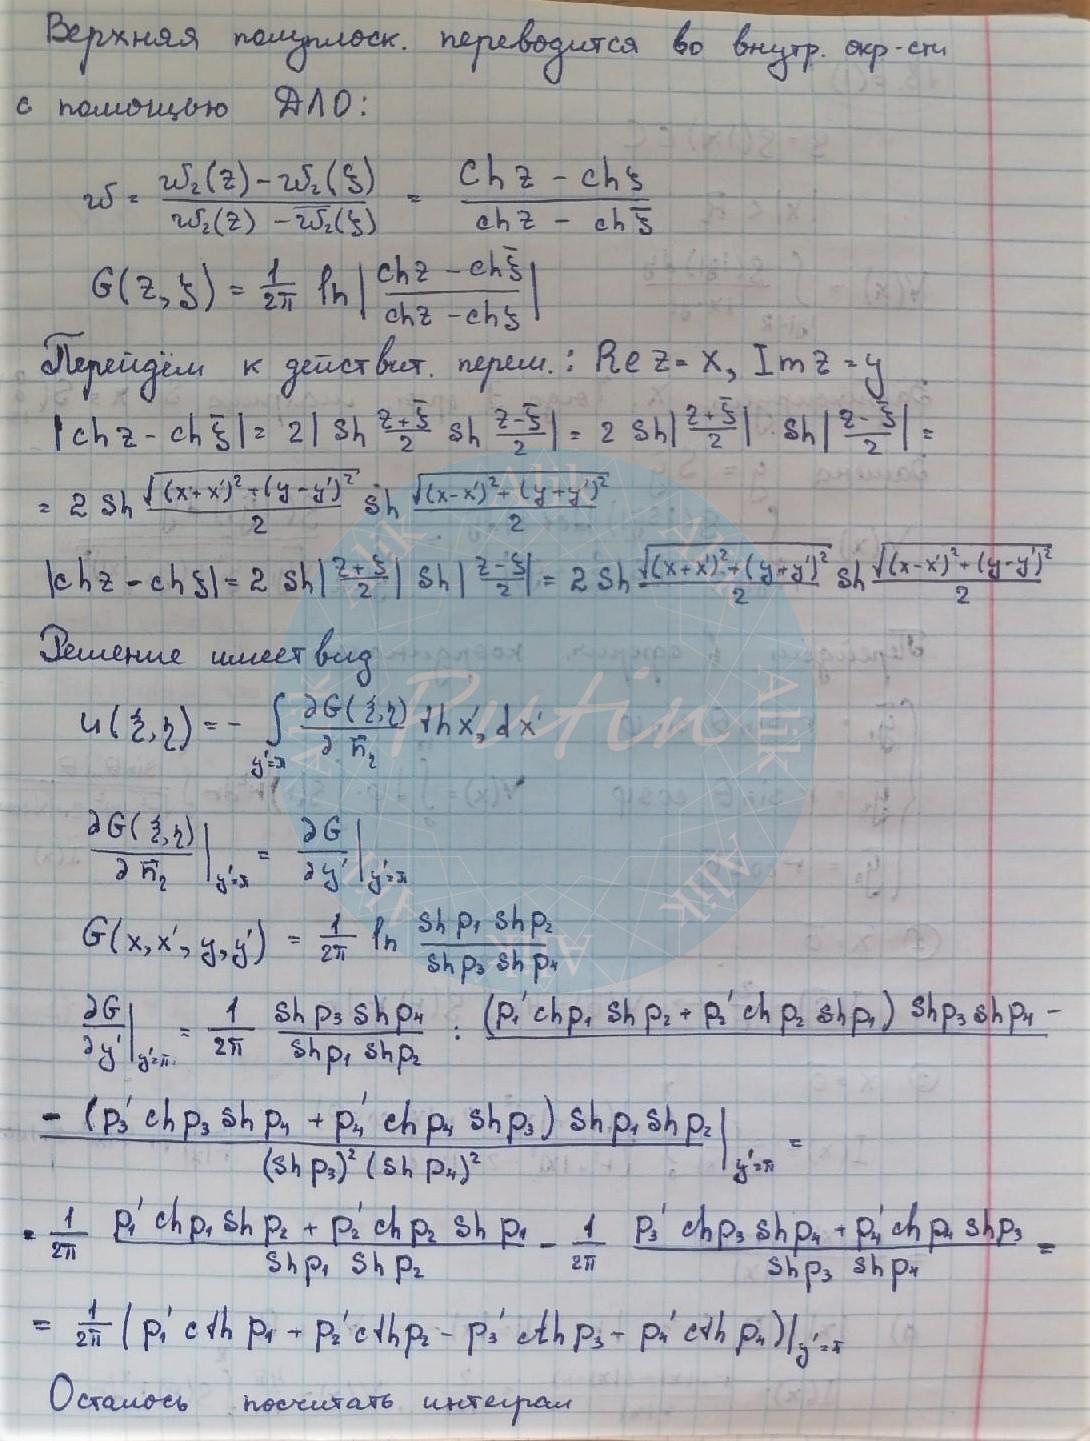 Верхняя полуплоск. переводится во внутр. окр-сти
с помощью ДЛО:
w = (w₂(z) - w₂(ξ)) / (w₂(z) - w̅₂(ξ)) = (ch z - ch ξ) / (ch z - ch ξ̅)
G(z, ξ) = 1/2π ln |(ch z - ch ξ̅) / (ch z - ch ξ)|
Перейдём к действит. перем.: Re z = x, Im z = y
|ch z - ch ξ̅| = 2 | sh (z+ξ̅)/2 sh (z-ξ̅)/2 | = 2 sh |(z+ξ̅)/2| sh |(z-ξ̅)/2| =
= 2 sh √((x+x')² + (y-y')²)/2 sh √((x-x')² + (y+y')²)/2
|ch z - ch ξ| = 2 sh |(z+ξ)/2| sh |(z-ξ)/2| = 2 sh √((x+x')² + (y+y')²)/2 sh √((x-x')² + (y-y')²)/2
Решение имеет вид
u(ξ, η) = - ∫_{y'=π} ∂G(ξ,η)/∂n̅₂ th x', dx'
∂G(ξ,η)/∂n̅₂ |_{y'=π} = ∂G/∂y' |_{y'=π}
G(x, x', y, y') = 1/2π ln (sh p₁ sh p₂)/(sh p₃ sh p₄)
∂G/∂y' |_{y'=π} = 1/2π (sh p₃ sh p₄)/(sh p₁ sh p₂) : (p₁' ch p₁ sh p₂ + p₂' ch p₂ sh p₁) sh p₃ sh p₄ -
- (p₃' ch p₃ sh p₄ + p₄' ch p₄ sh p₃) sh p₁ sh p₂ / (sh p₃)² (sh p₄)² |_{y'=π} =
= 1/2π (p₁' ch p₁ sh p₂ + p₂' ch p₂ sh p₁)/(sh p₁ sh p₂) - 1/2π (p₃' ch p₃ sh p₄ + p₄' ch p₄ sh p₃)/(sh p₃ sh p₄) =
= 1/2π (p₁' cth p₁ + p₂' cth p₂ - p₃' cth p₃ - p₄' cth p₄)|_{y'=π}
Осталось посчитать интеграл
Putin
Alik
Alik
Alik
Alik
Alik
Alik
Alik
Alik